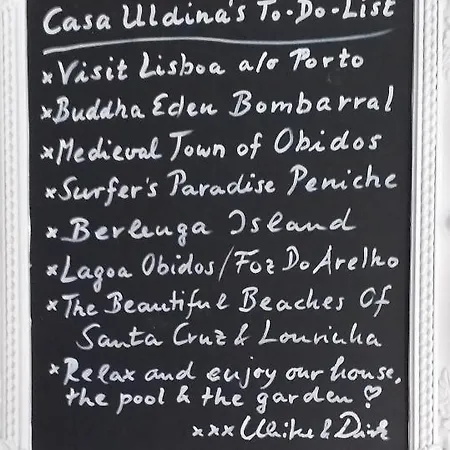 Casa Uldina's To-Do-List
xVisit Lisboa a/o Porto
xBuddha Eden Bombarral
xMedieval Town of Obidos
xSurfer's Paradise Peniche
xBerlenga Island
xLagoa Obidos/Foz Do Arelho
xThe Beautiful Beaches Of
Santa Cruz & Lourinha
xRelax and enjoy our house,
the pool & the garden ♡
xxx Ulrike & Dirk